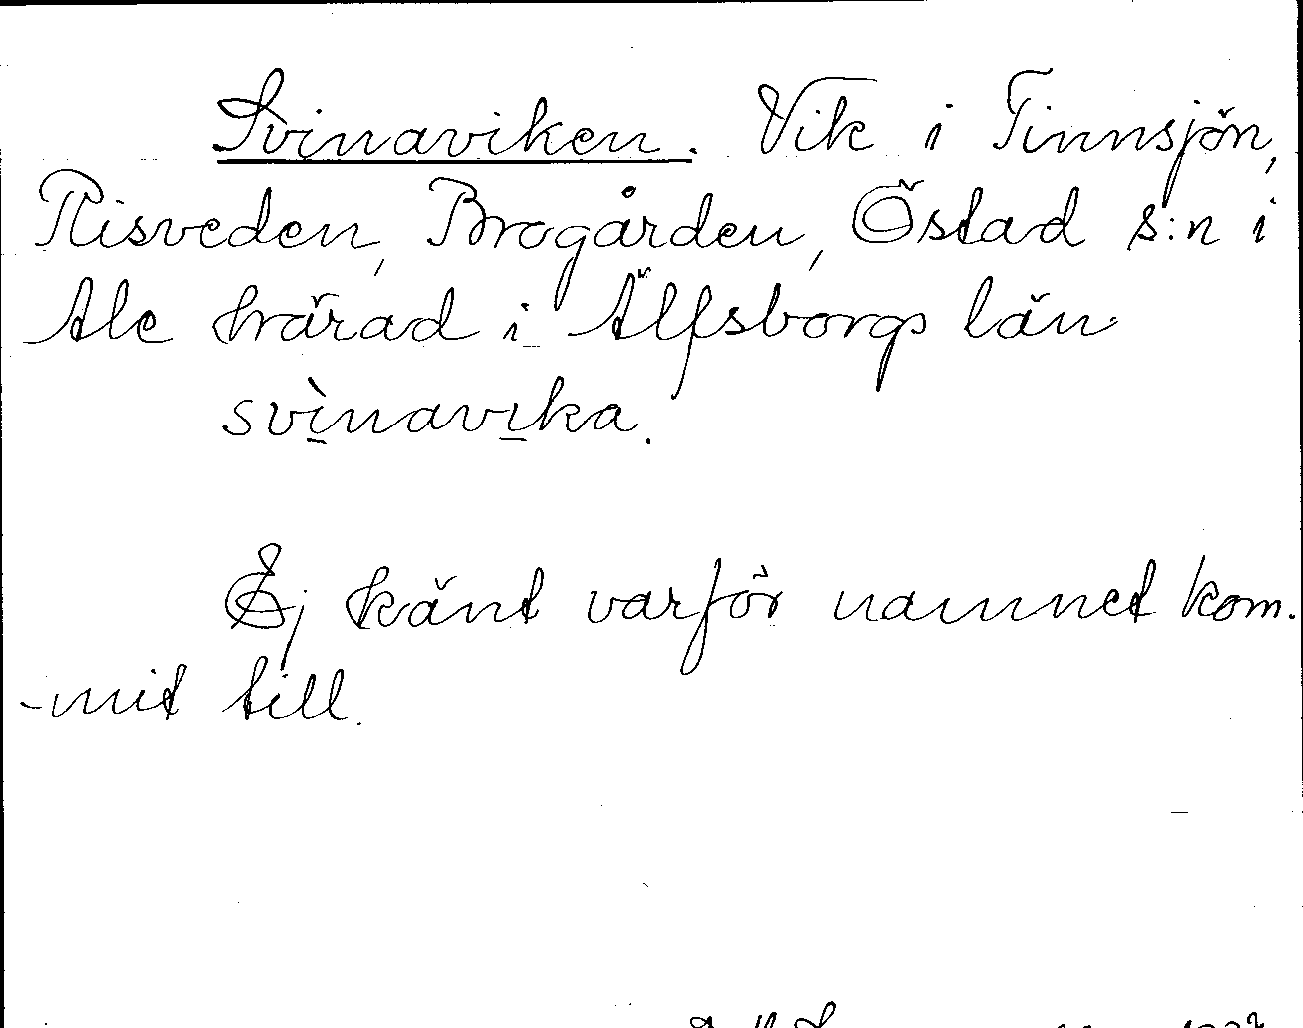 Svinaviken. Vik i Tinnsjön,
Risveden, Brogården, Östad s:n i
Ale härad i Älfsborgs län
svìnavika.
Ej känt varför namnet kom-
-mit till.